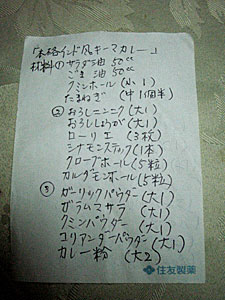 「本格インド風キーマカレー」
材料① サラダ油 50cc
ごま油 50cc
クミンホール(小1)
たまねぎ(中1個半)
② おろしニンニク(大1)
おろししょうが(大1)
ローリエ(3枚)
シナモンスティック(1本)
クローブホール(5粒)
カルダモンホール(5粒)
③ ガーリックパウダー(大1)
ガラムマサラ(大1)
クミンパウダー(大1)
コリアンダーパウダー(大1)
カレー粉(大2)
住友製薬